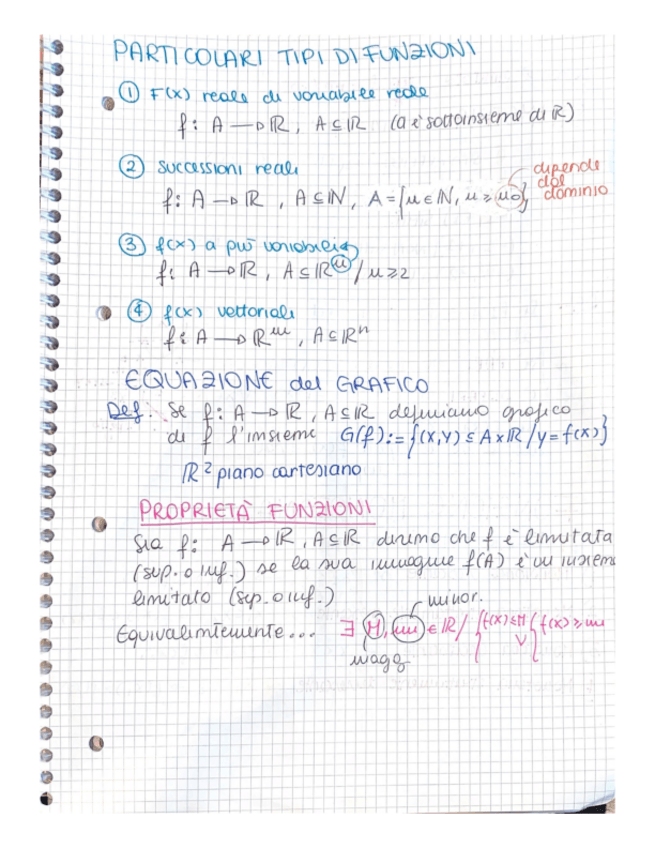 PARTICOLARI TIPI DI FUNZIONI
① F(x) reale di variabile reale
f: A → ℝ, A ⊆ ℝ (a è sottoinsieme di ℝ)
② successioni reali
f: A → ℝ, A ⊆ ℕ, A = {n ∈ ℕ, n ≥ n₀}
dipende dal dominio
③ f(x) a più variabili
f: A → ℝ, A ⊆ ℝⁿ / n ≥ 2
④ f(x) vettoriali
f: A → ℝᵐ, A ⊆ ℝⁿ
EQUAZIONE del GRAFICO
Def. Se f: A → ℝ, A ⊆ ℝ definiamo grafico
di f l'insieme G(f) := {(x,y) ⊆ A x ℝ / y = f(x)}
ℝ² piano cartesiano
PROPRIETÀ FUNZIONI
Sia f: A → ℝ, A ⊆ ℝ diremo che f è limitata
(sup. o inf.) se la sua immagine f(A) è un insieme
limitato (sup. o inf.)
minor.
Equivalentemente... ∃ M, m ∈ ℝ / {f(x) ≤ M ∨ {f(x) ≥ m
magg.